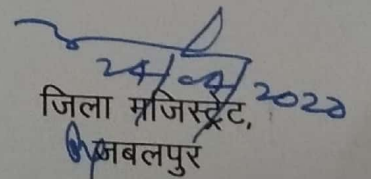 24/04/2020
जिला मजिस्ट्रेट,
जबलपुर